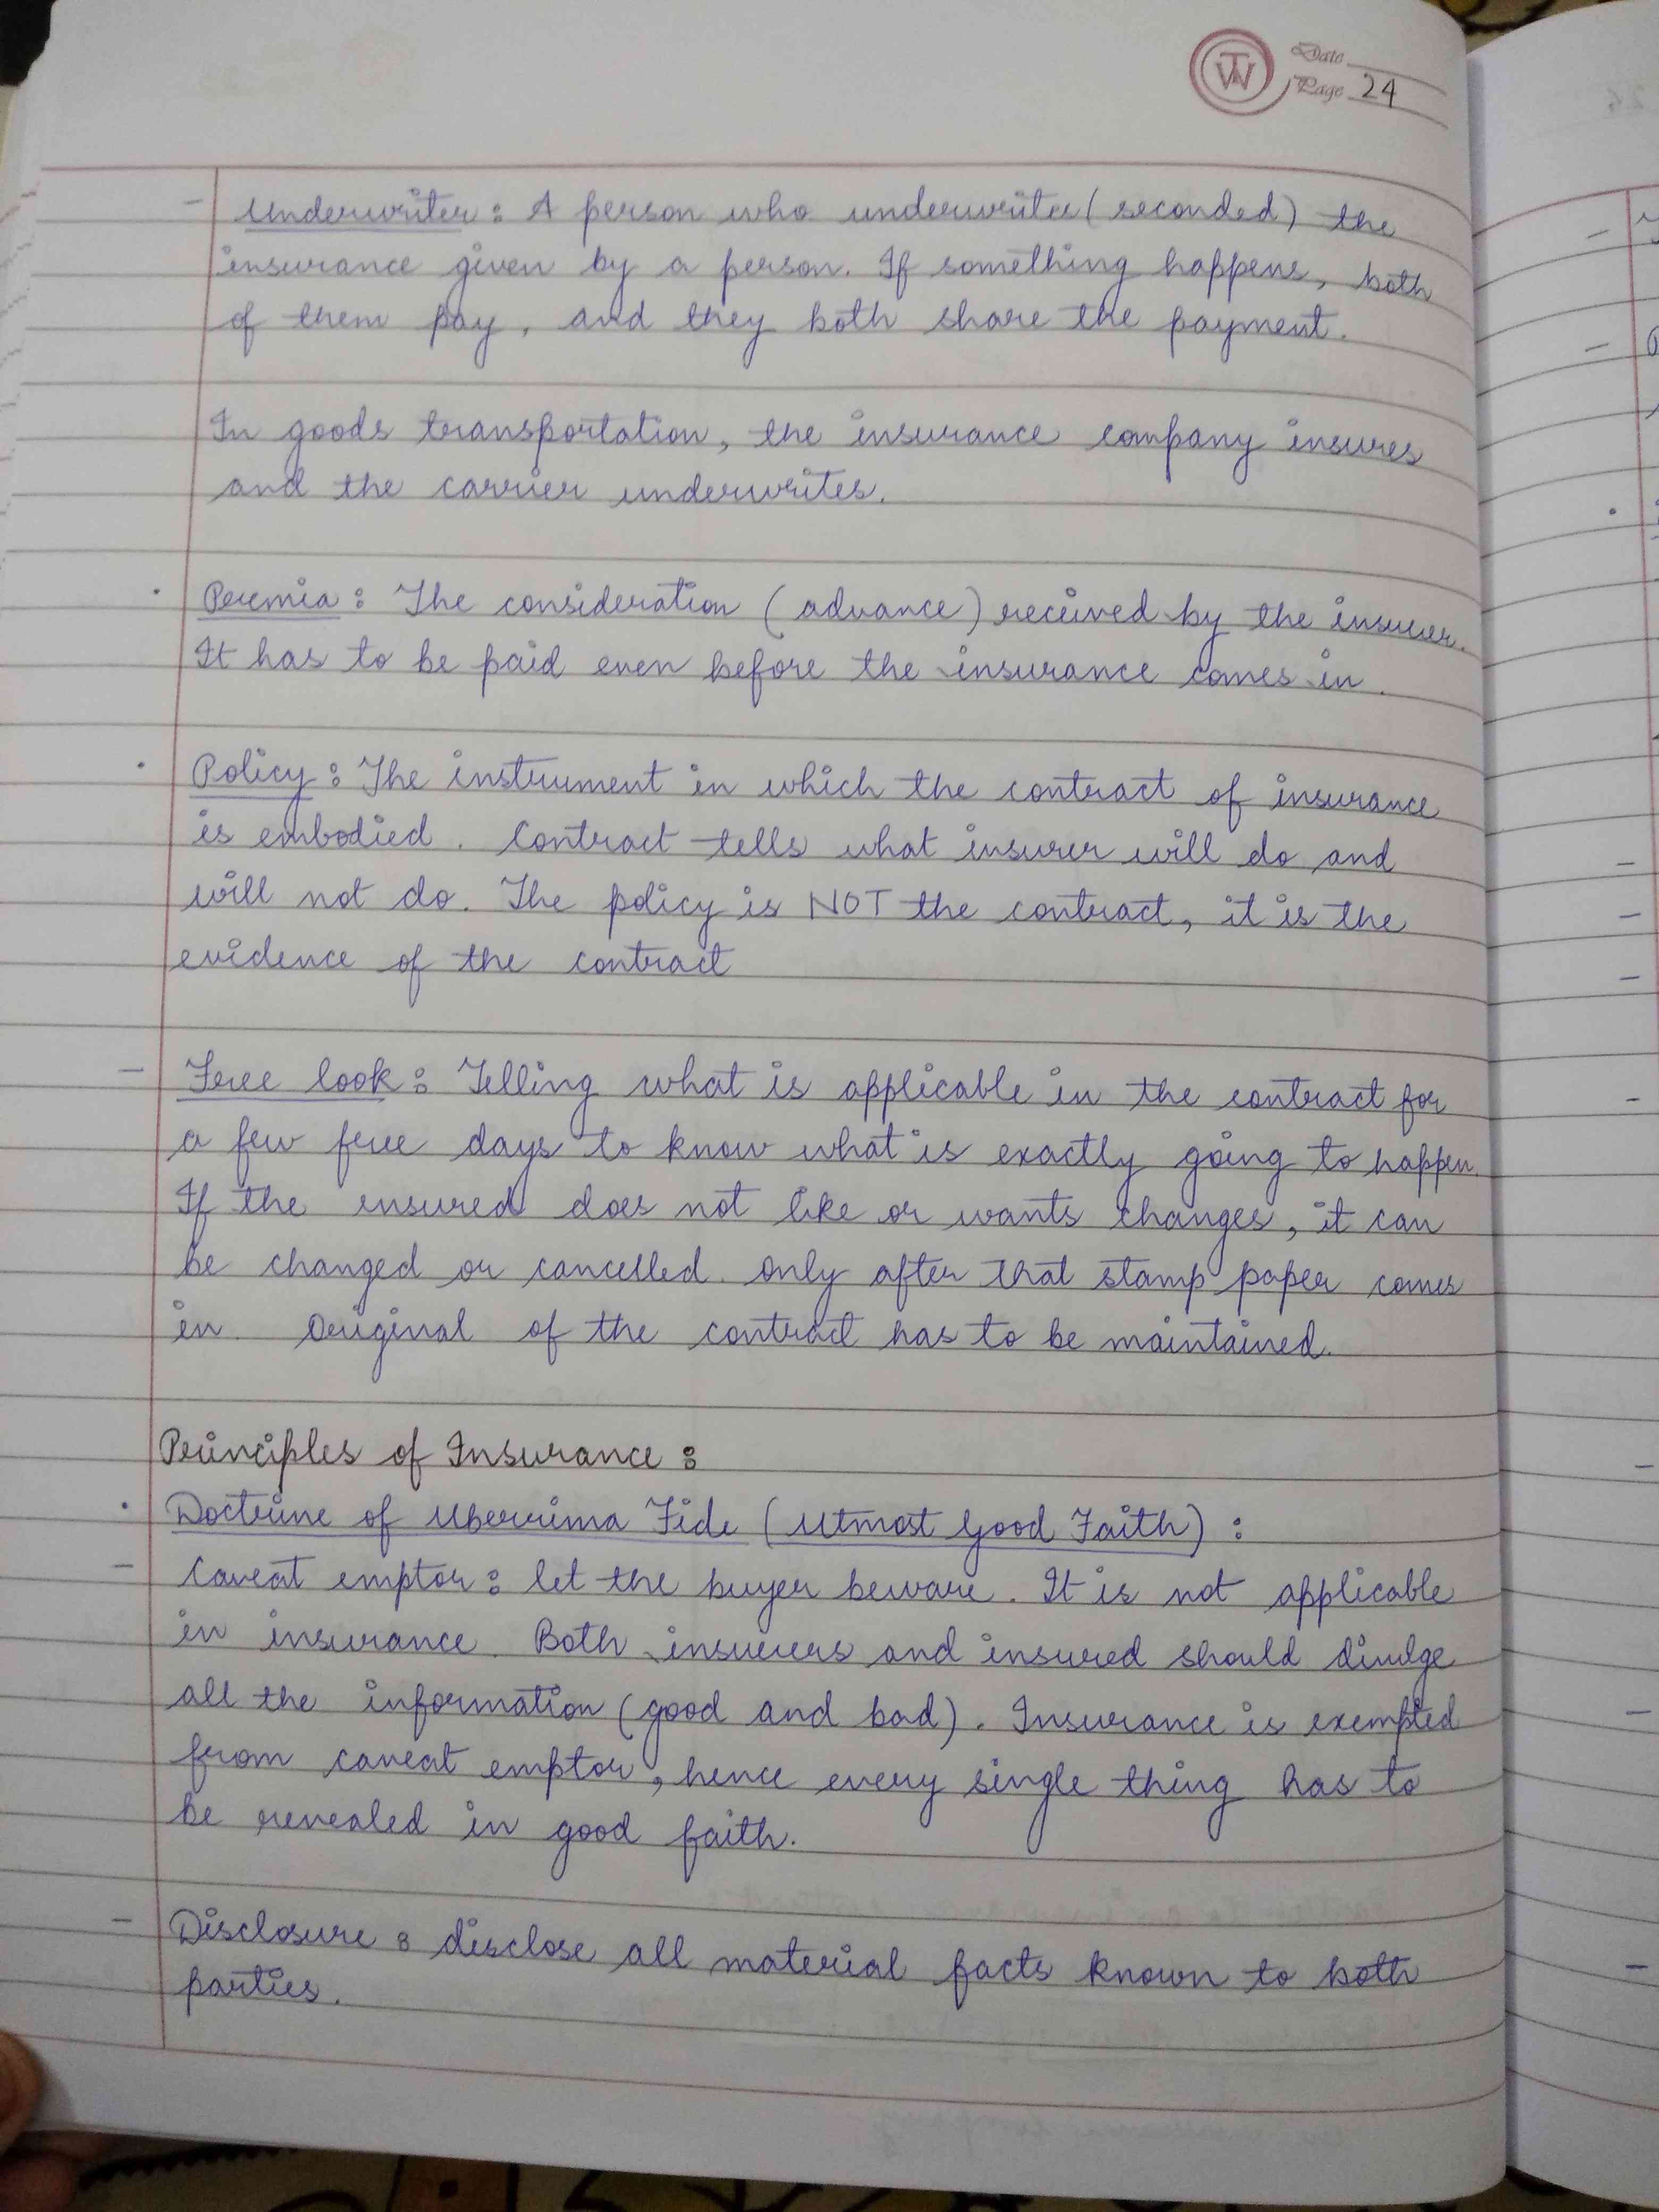 TWN
Date
Page 24
- Underwriter : A person who underwrites (seconded) the
insurance given by a person. If something happens, both
of them pay, and they both share the payment.
In goods transportation, the insurance company insures
and the carrier underwrites.
· Premia : The consideration (advance) received by the insurer.
It has to be paid even before the insurance comes in.
· Policy : The instrument in which the contract of insurance
is embodied. Contract tells what insurer will do and
will not do. The policy is NOT the contract, it is the
evidence of the contract
- Free look : Telling what is applicable in the contract for
a few free days to know what is exactly going to happen.
If the insured does not like or wants changes, it can
be changed or cancelled. Only after that stamp paper comes
in. Original of the contract has to be maintained.
Principles of Insurance :
· Doctrine of Uberrima Fide (Utmost Good Faith) :
- Caveat emptor : let the buyer beware. It is not applicable
in insurance. Both insurers and insured should divulge
all the information (good and bad). Insurance is exempted
from caveat emptor, hence every single thing has to
be revealed in good faith.
- Disclosure : disclose all material facts known to both
parties.